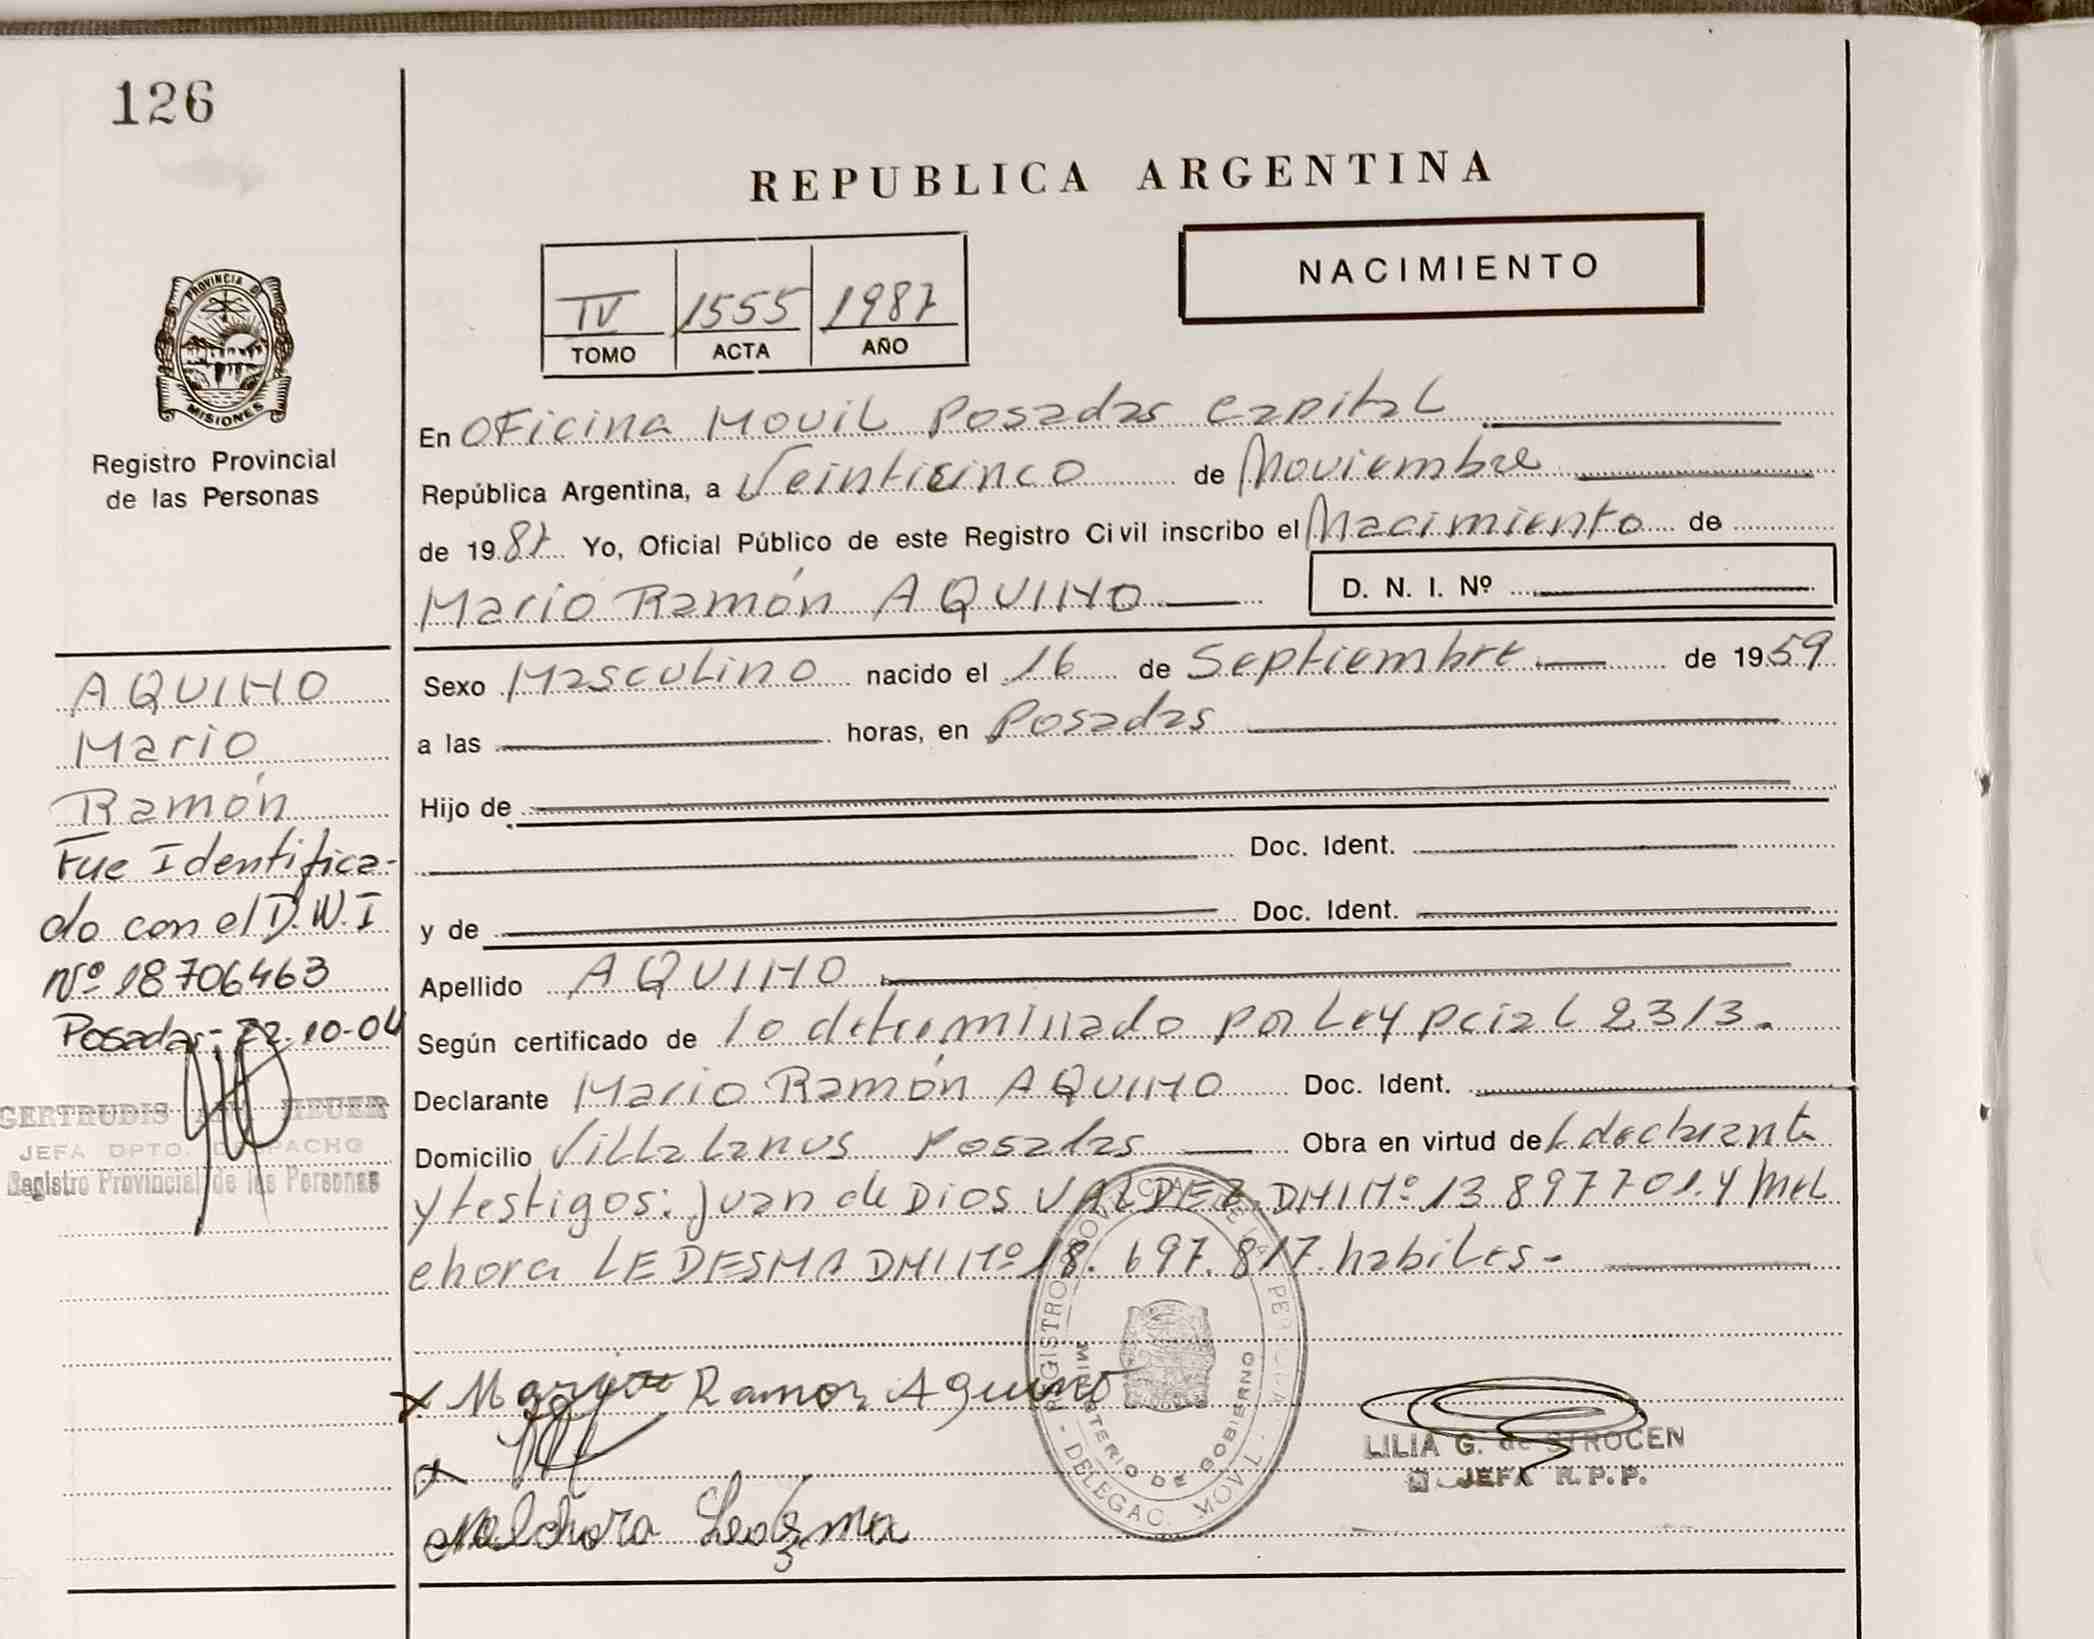 126
REPUBLICA ARGENTINA
NACIMIENTO
IV 1555 1987
TOMO ACTA AÑO
PROVINCIA D
MISIONES
Registro Provincial
de las Personas
En Oficina Movil Posadas Capital
República Argentina, a Veinticinco de Noviembre
de 1987 Yo, Oficial Público de este Registro Civil inscribo el Nacimiento de
Mario Ramón AQUINO D. N. I. Nº
Sexo Masculino nacido el 16 de Septiembre de 1959
a las horas, en Posadas
Hijo de
Doc. Ident.
y de Doc. Ident.
Apellido AQUINO
Según certificado de lo determinado por Ley pcial 2313.
Declarante Mario Ramón AQUINO Doc. Ident.
Domicilio Villa Lanus Posadas Obra en virtud de L declarante
y testigos: Juan de Dios VALDEZ DNI Nº 13897701. Y Mel
chora LEDESMA DNI Nº 18.697.817. habiles.-
AQUINO
Mario
Ramón
Fue Identifica-
do con el D.N.I
Nº 18706463
Posadas- 22-10-04
GERTRUDIS
JEFA DPTO. DESPACHO
Registro Provincial de las Personas
x Ramon Aquino
x
Melchora Ledezma
REGISTRO PROVINCIAL DE LAS PERSONAS
MINISTERIO DE GOBIERNO
- DELEGAC. MOVIL -
LILIA G. de STROCEN
JEFA R.P.P.